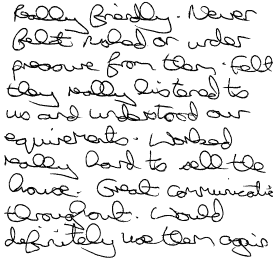 Really friendly. Never
felt rushed or under
pressure from them. Felt
they really listened to
us and understood our
equirements. Worked
really hard to sell the
house. Great communicatio
throughout. Would
definitely use them again